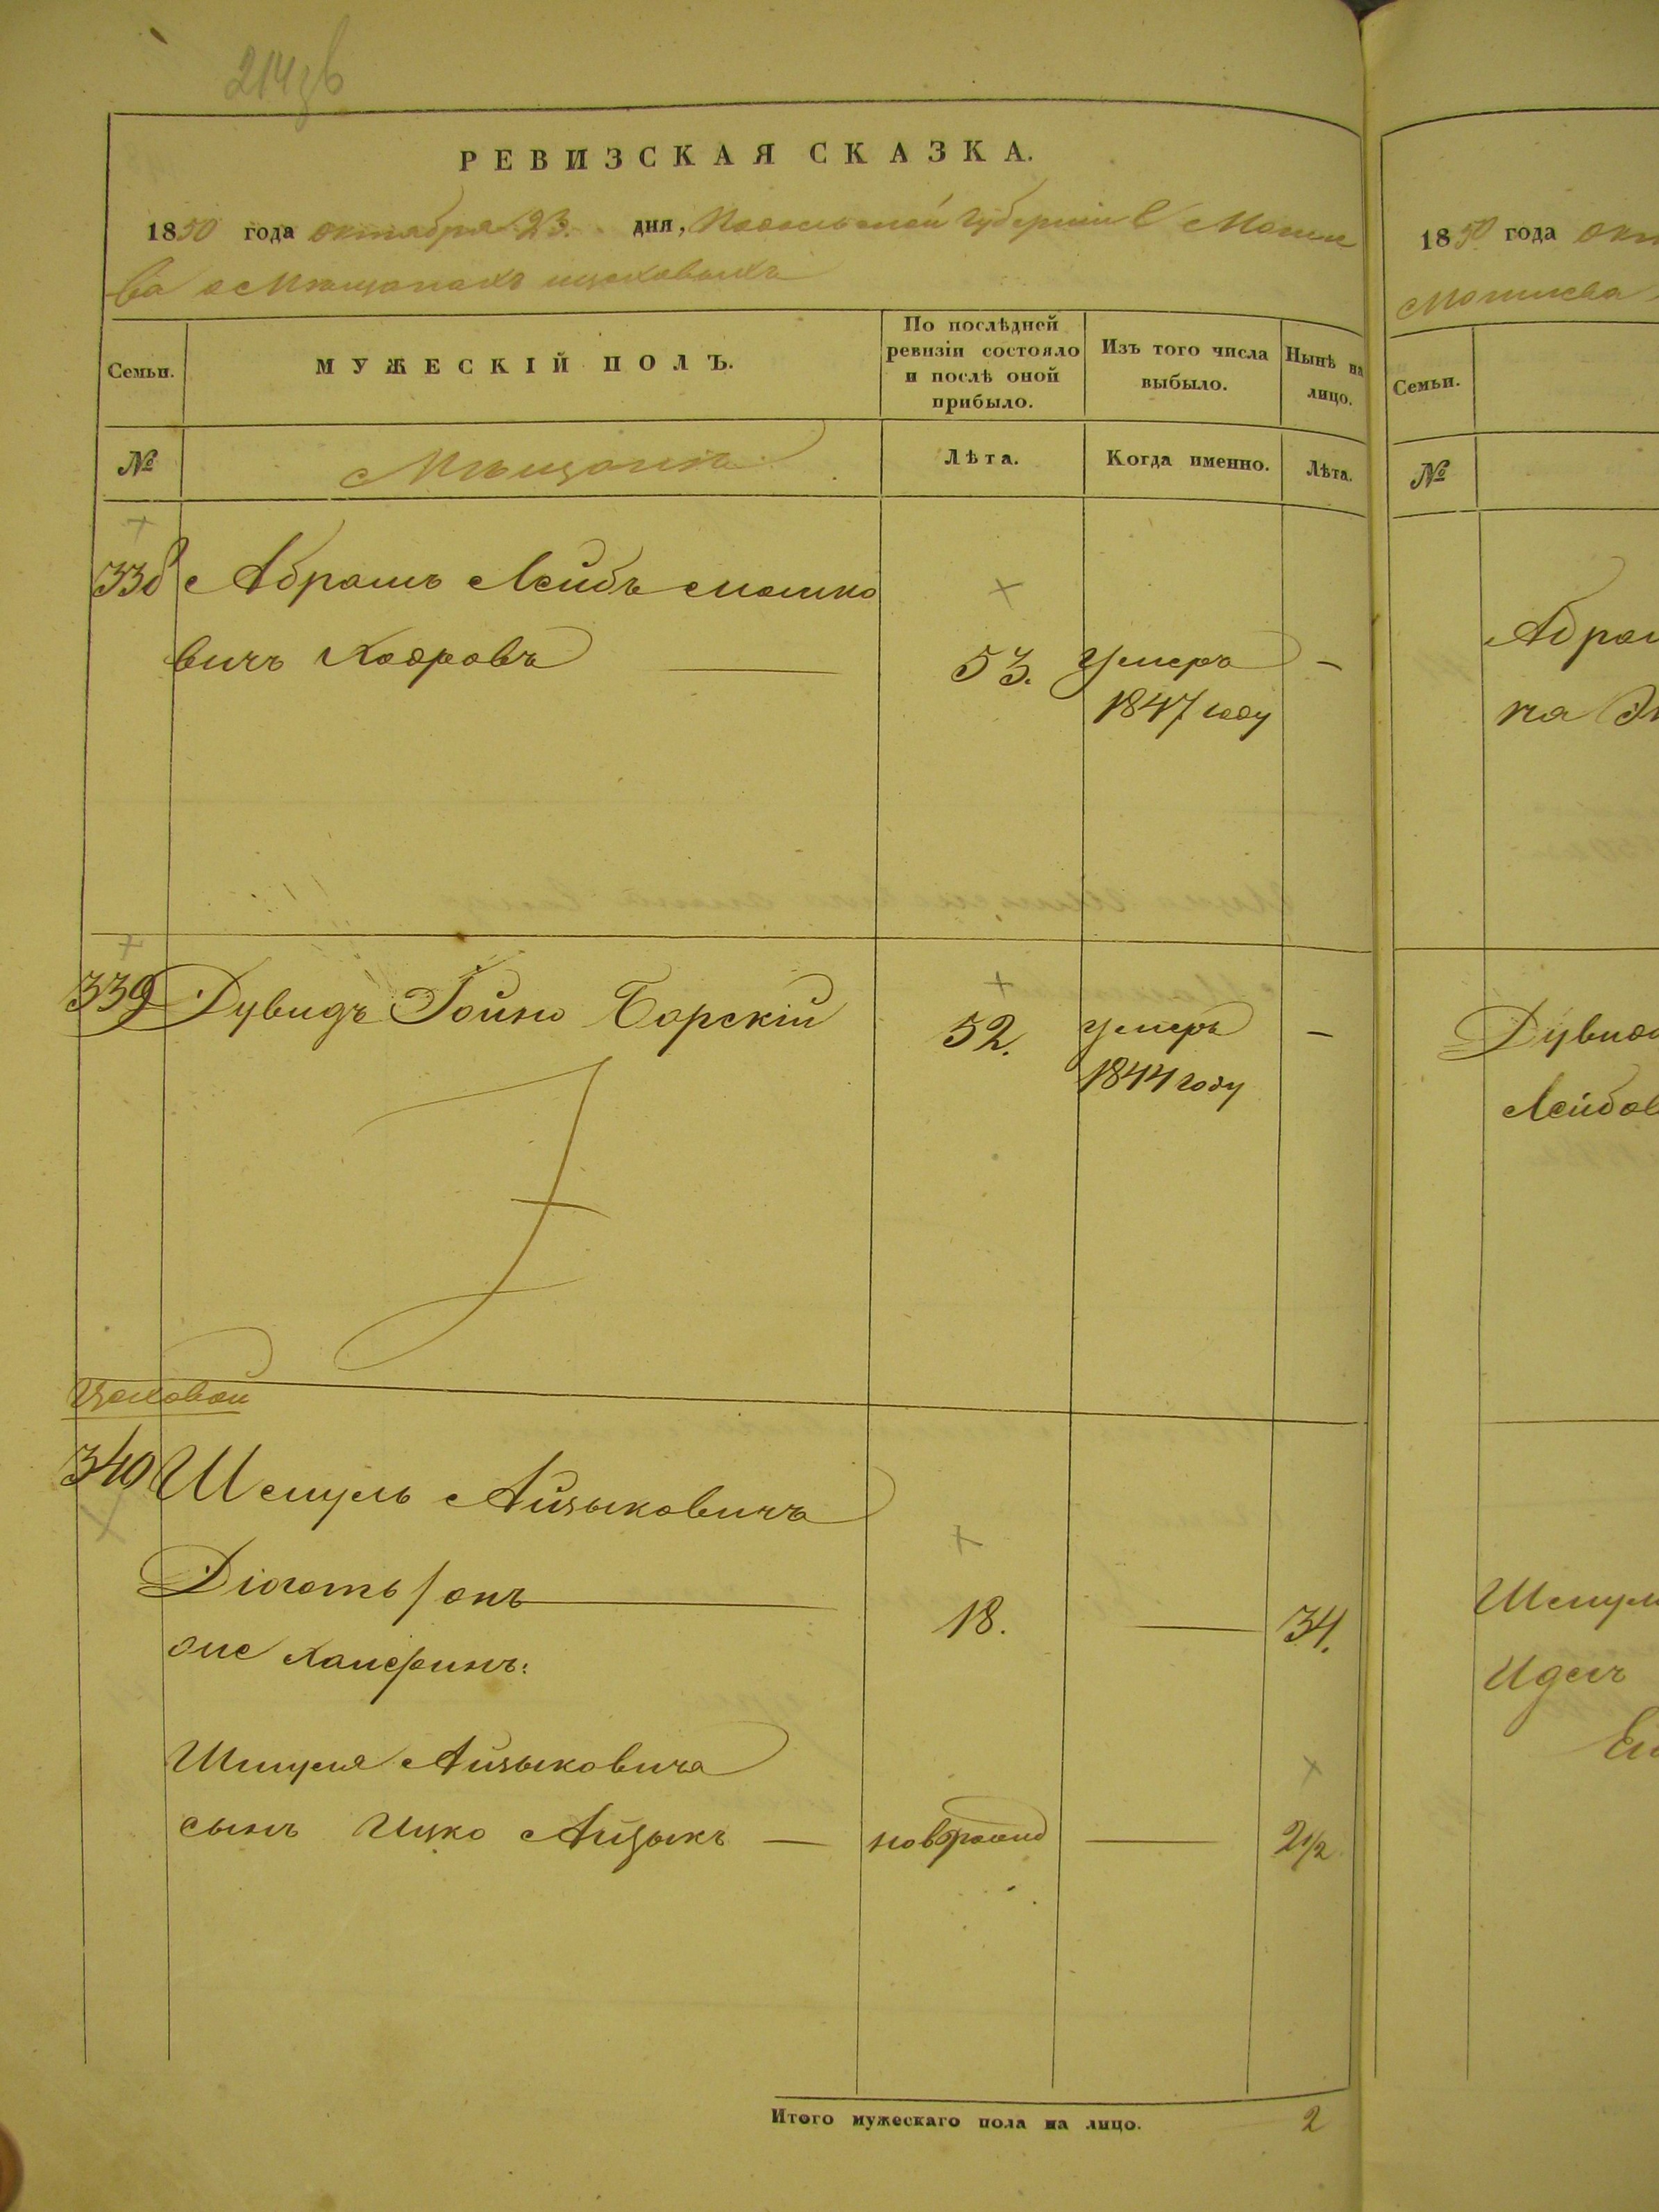 214зв
РЕВИЗСКАЯ СКАЗКА.
1850 года октября 23. дня, Подольской губернии г Могиле
ва о Мещанахъ цеховыхъ
Семьи.
МУЖЕСКІЙ ПОЛЪ.
По послѣдней
ревизіи состояло
и послѣ оной
прибыло.
Изъ того числа
выбыло.
Нынѣ на
лицо.
№
Мещане
Лѣта.
Когда именно.
Лѣта.
338 Абрамъ Лейбъ Мошко
вичъ Кодровъ 53. умеръ —
1847 году
339 Дувидъ Гойно Борскій 52. умеръ —
1844 году
Цеховой
340 Шемуль Айзыковичъ
онъ 18. — 34.
же
Шмуля Айзыковича
сынъ Ицко Айзыкъ — новорожд — 2 1/2
Итого мужескаго пола на лицо. 2
1850 года окт
Могилева
Семьи.
№
Абрам
Дувид
Лейбов
Шемул